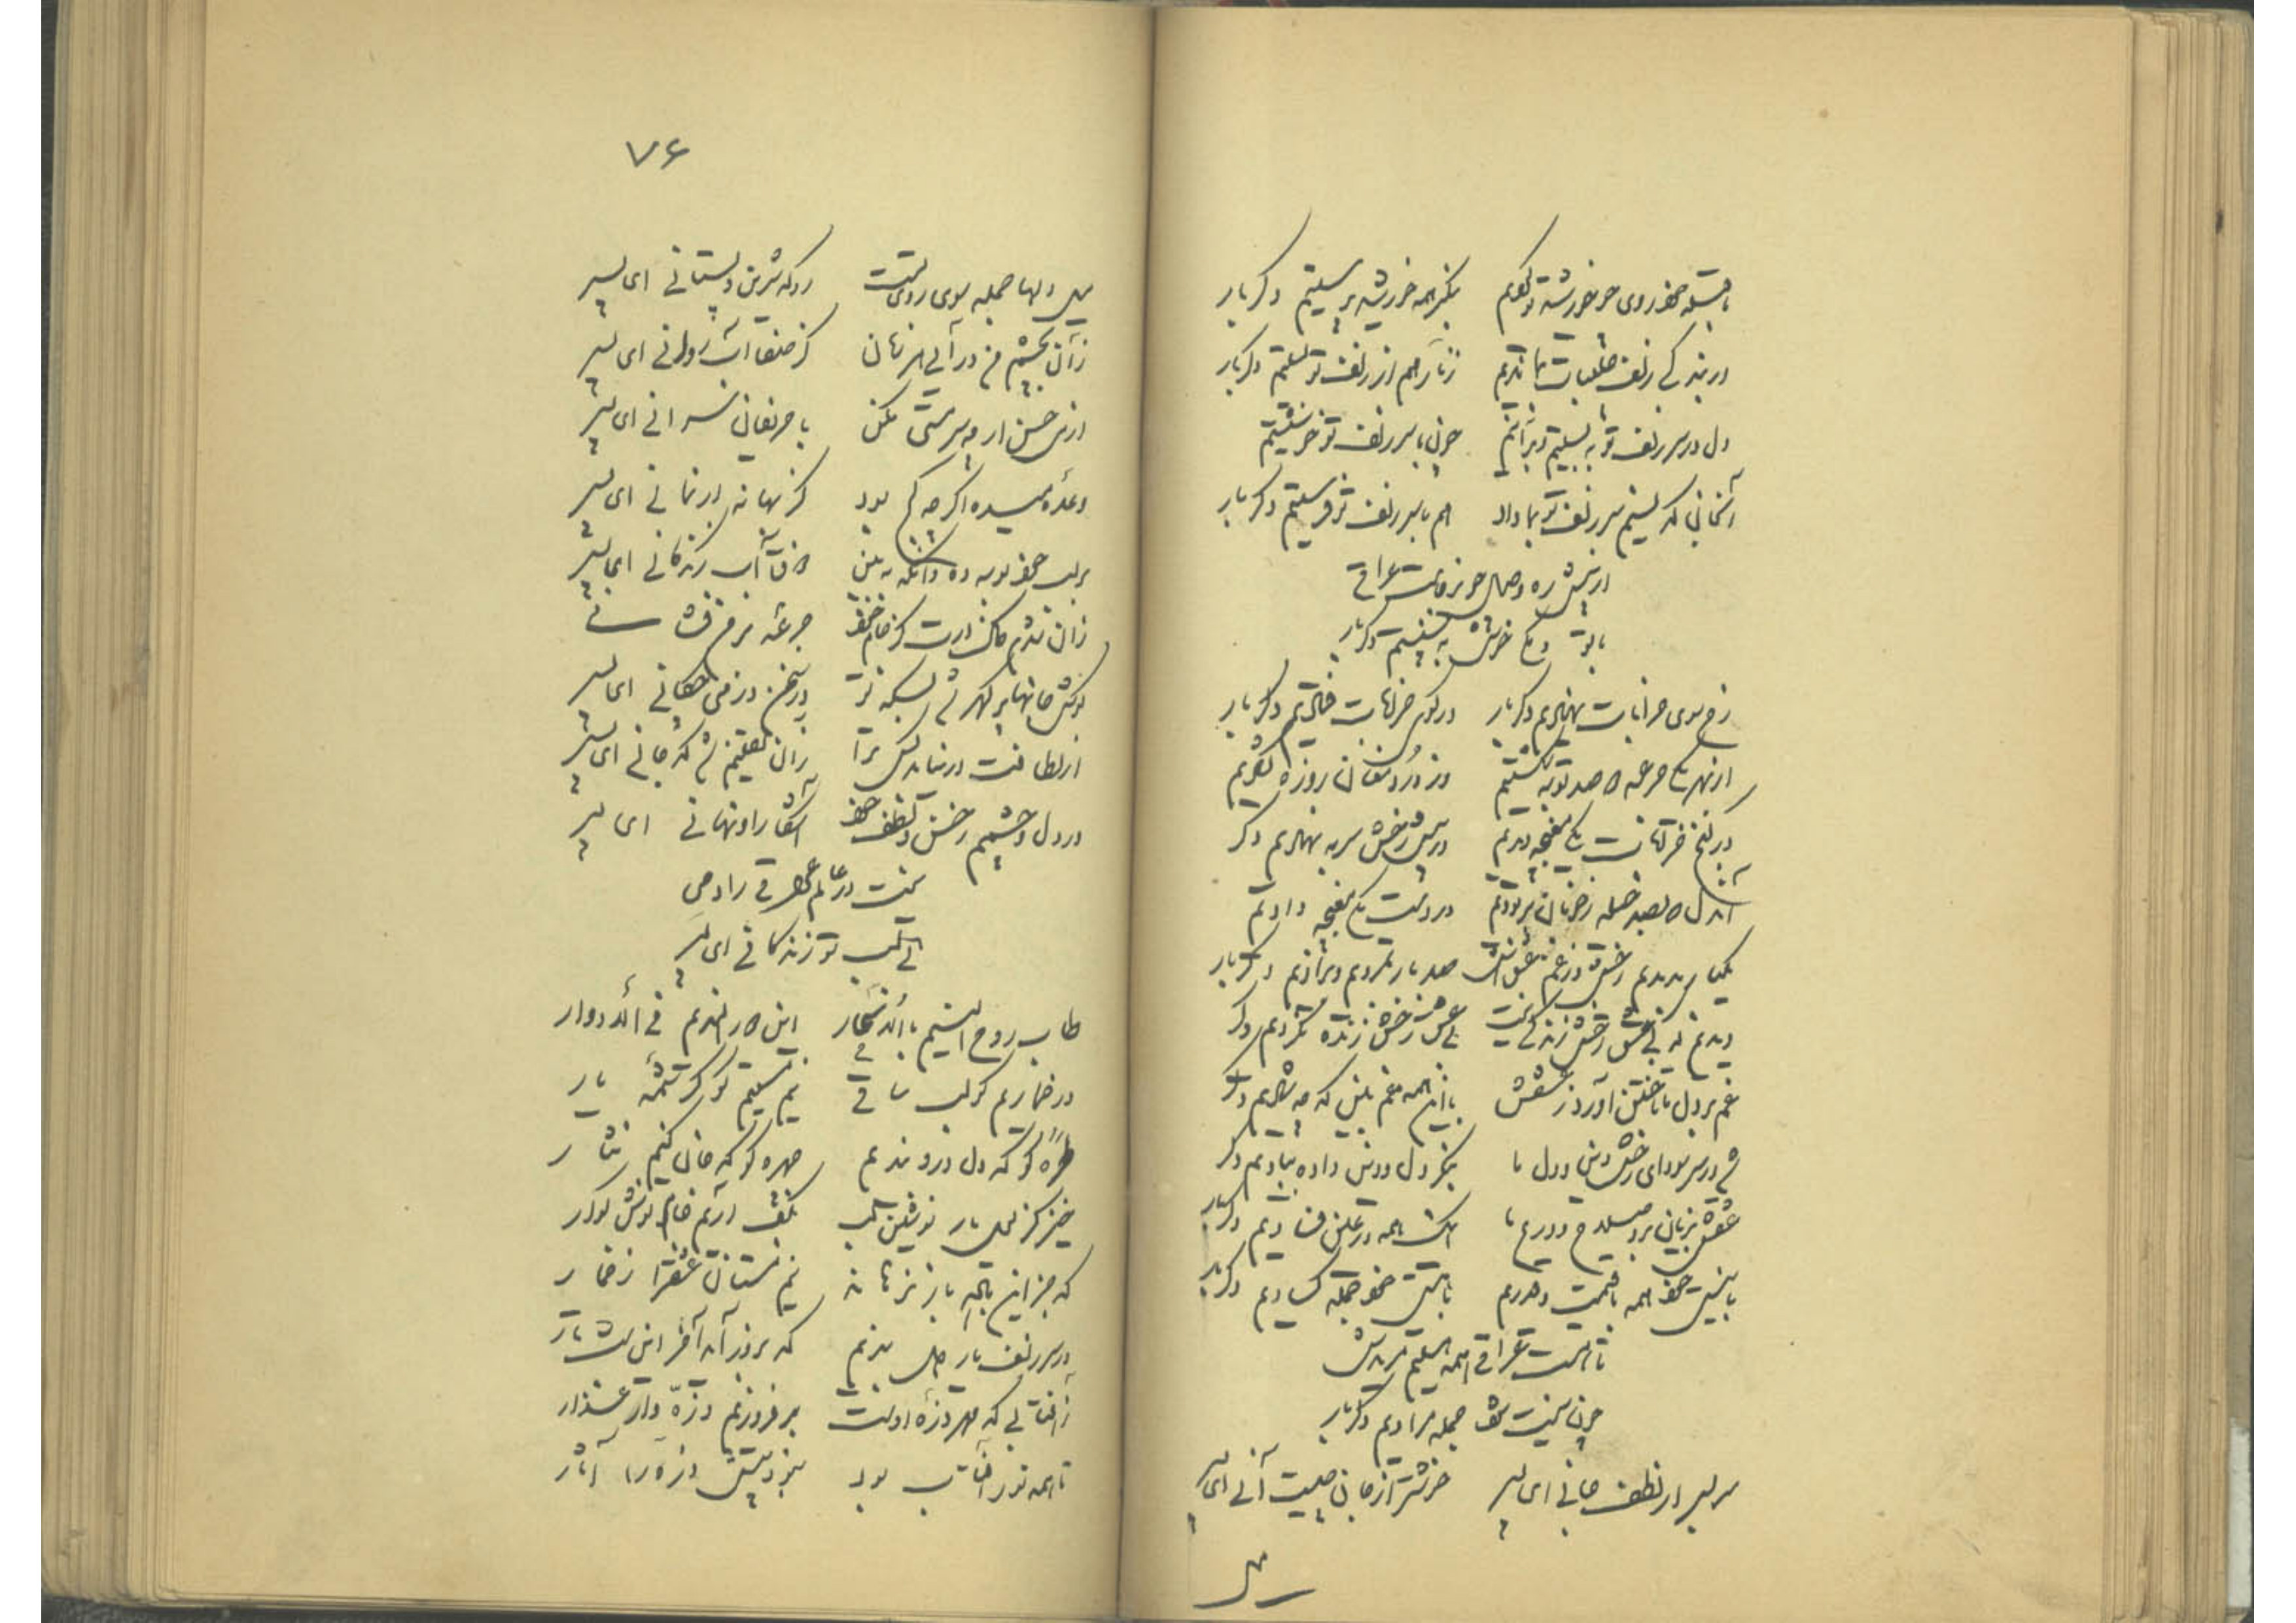 با قبله چو روی چو خورشید تو کردیم بنگر همه خورشید پرستیم دگر بار
در بندگی زلف چلیپات بماندیم زنار هم از زلف تو بستیم دگر بار
دل در سر زلف تو ببستیم و برآنیم چون با سر زلف تو خوشستیم
آنجانی که نسیم سر زلف تو بما داد هم با سر زلف تو فرستیم دگر بار
از پیش ره وصال چو برخاست عراقی
با تو دمی خوش بنشستیم دگر بار
رخ سوی خرابات نهادیم دگر بار در کوی خرابات فتادیم دگر بار
از بهر یکی جرعه دو صد توبه شکستیم وز درد مغان روزه گشادیم
در کنج خرابات یکی مغبچه دیدیم در پیش رخش سر بنهادیم دگر
آن دل که بصد حیله ز خوبان بربودیم در دست یکی مغبچه دادیم
یکبار ندیدیم رخش وز غم عشقش صد بار بمردیم و بزادیم دگر بار
دیدیم که بی عشق رخش زندگیی نیست بی عشق رخش زنده نگردیم دگر
غم بر دل ما تاختن آورد ز عشقش با این همه غم بین که چه شادیم دگر
شد در سر سودای رخش دین و دل ما بنگر دل و دین داده ببادیم دگر
عشقش بزیان برد صلاح و ورع ما اینک همه در عین فسادیم دگر بار
با نیستی خود همه با قیمت و قدریم با هستی خود جمله کسادیم دگر بار
تا هست عراقی همه هستیم مریدش
چون نیست شود جمله مرادیم دگر بار
سر بسر از لطف جانی ای پسر خوشتر از جان چیست آنی ای پسر
میل
۷۶
میل دلها جمله سوی روی تست رو که شیرین دلستانی ای پسر
زان بچشم من درآیی هر زمان کز صفا آب روانی ای پسر
از می حسن ار چه سرمستی مکن با حریفان سرگرانی ای پسر
وعده میده اگر چه کج بود کز بهانه درنمانی ای پسر
بر لب خود بوسه ده وانگه ببین ذوق آب زندگانی ای پسر
زان شدم خاک درت کز جام خود جرعه بر من فشانی
گوش جانها پر گهر شد بسکه تو در سخن در می چکانی ای پسر
از لطافت درنیابد کس ترا زان یقینم شد که جانی ای پسر
در دل و چشمم ز حسن و لطف خود آشکارا و نهانی ای پسر
نیست در عالم عراقی را دمی
بی لب تو زندگانی ای پسر
طاب روح النسیم بالاسحار این دور الندیم بالادوار
در خماریم کو لب ساقی نیم مستیم کو کرشمه یار
طره کو که دل درو بندیم چهره کو که جان کنیم نثار
خیز کز لعل یار نوشین لب بکف آریم جام نوش گوار
که جز این باده باز نرهاند نیم مستان عشق را ز خمار
در سر زلف یار دل بندیم که بروز آید آخر این شب تار
ز آفتابی که مهر ذره اوست برفروزیم ذره وار عذار
تا همه نور آفتاب بود نبود پیش ذره را آثار